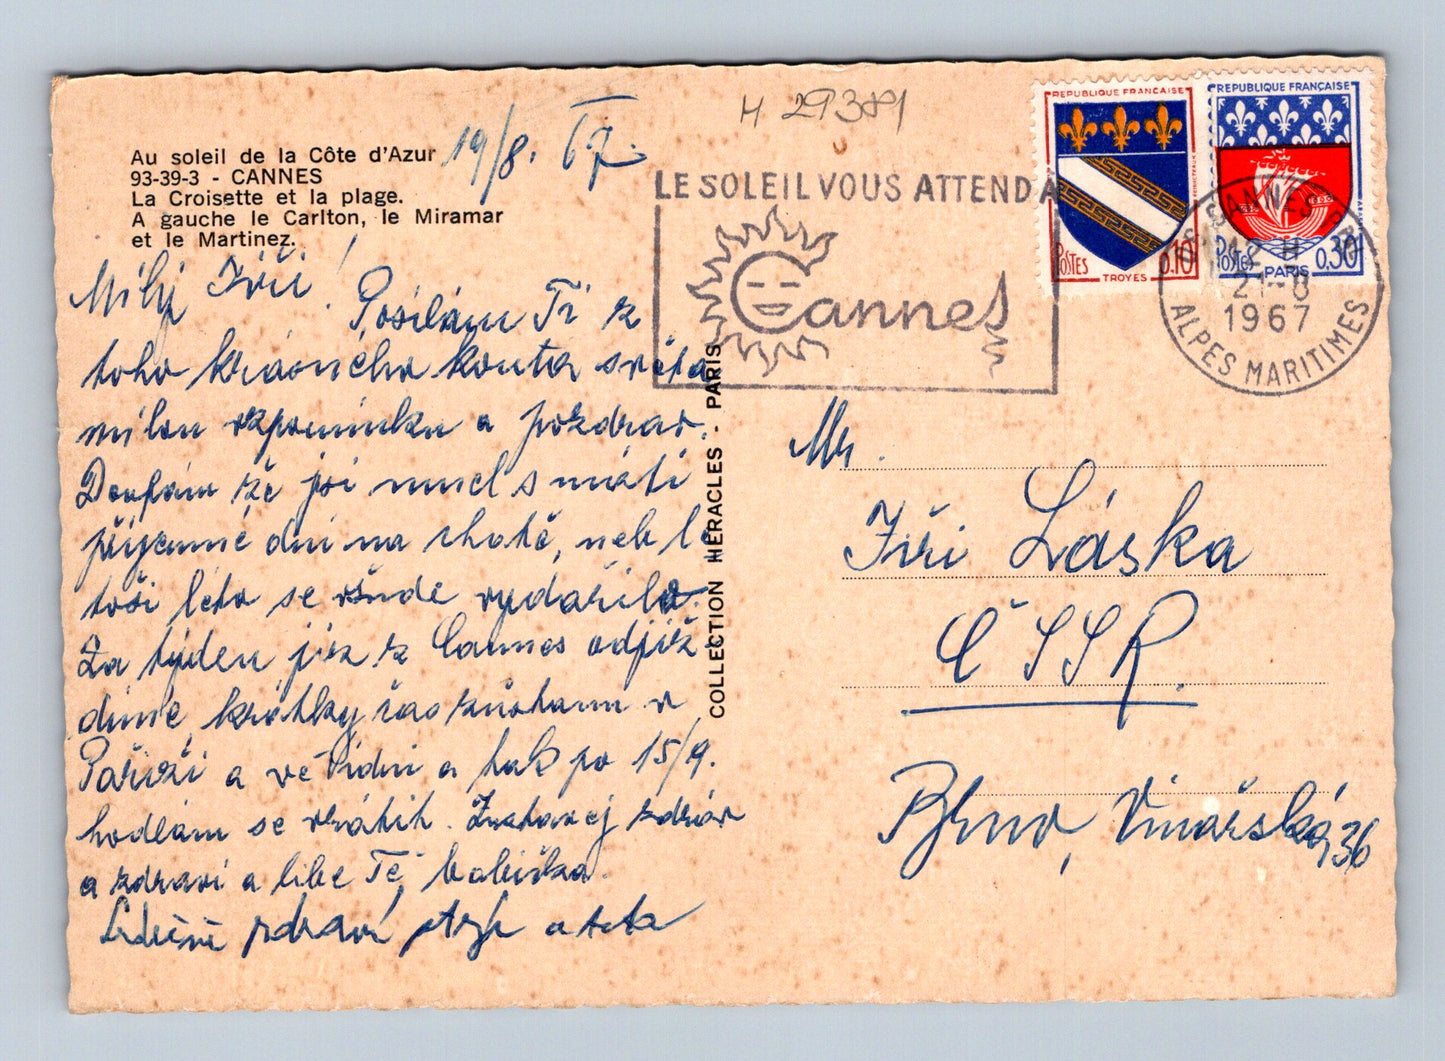 H 29381
Au soleil de la Côte d'Azur
93-39-3 - CANNES
La Croisette et la plage.
A gauche le Carlton, le Miramar
et le Martinez.
19/8. 67.
LE SOLEIL VOUS ATTEND A
Cannes
REPUBLIQUE FRANÇAISE
POSTES 0.10
TROYES
REPUBLIQUE FRANÇAISE
POSTES 0,30
PARIS
CANNES
12 H
21-8
1967
ALPES MARITIMES
Milý Jiří!
Posílám Ti z
toho krásného kouta světa
milou vzpomínku a pozdrav.
Doufám že jsi mnel s máti
příjemné dni na chatě, neb le
toši léto se všude vydařilo.
Za týden již z Cannes odjíž
díme, krátky čas zůstanu v
Paříži a ve Vídni a tak po 15/9.
hodlám se vrátit. Zustavej zdráv
a zdraví a líbe Tě, babička.
Srdečně zdraví strýc a teta
COLLECTION HERACLES - PARIS
Mr.
Jiři Láska
ČSSR.
Brno, Vinařská, 36